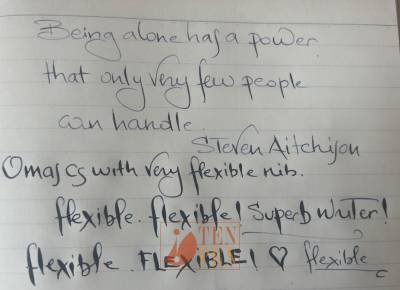 Being alone has a power
that only very few people
can handle.
Steven Aitchison
Omas CS with very flexible nib.
flexible. flexible! Superb writer!
flexible. FLEXIBLE! ♡ flexible
TEN